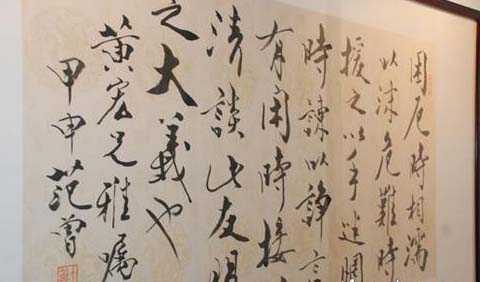 困厄時相濡
以沫危難時
援之以手迷惘
時諫以諍言
有闲時接
清談此友朋
之大義也
黄宏兄雅嘱
甲申范曾